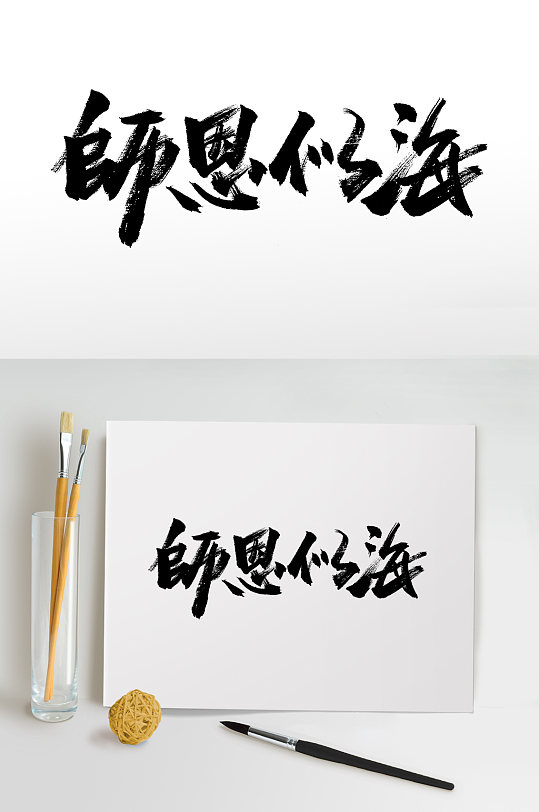 師恩似海
師恩似海